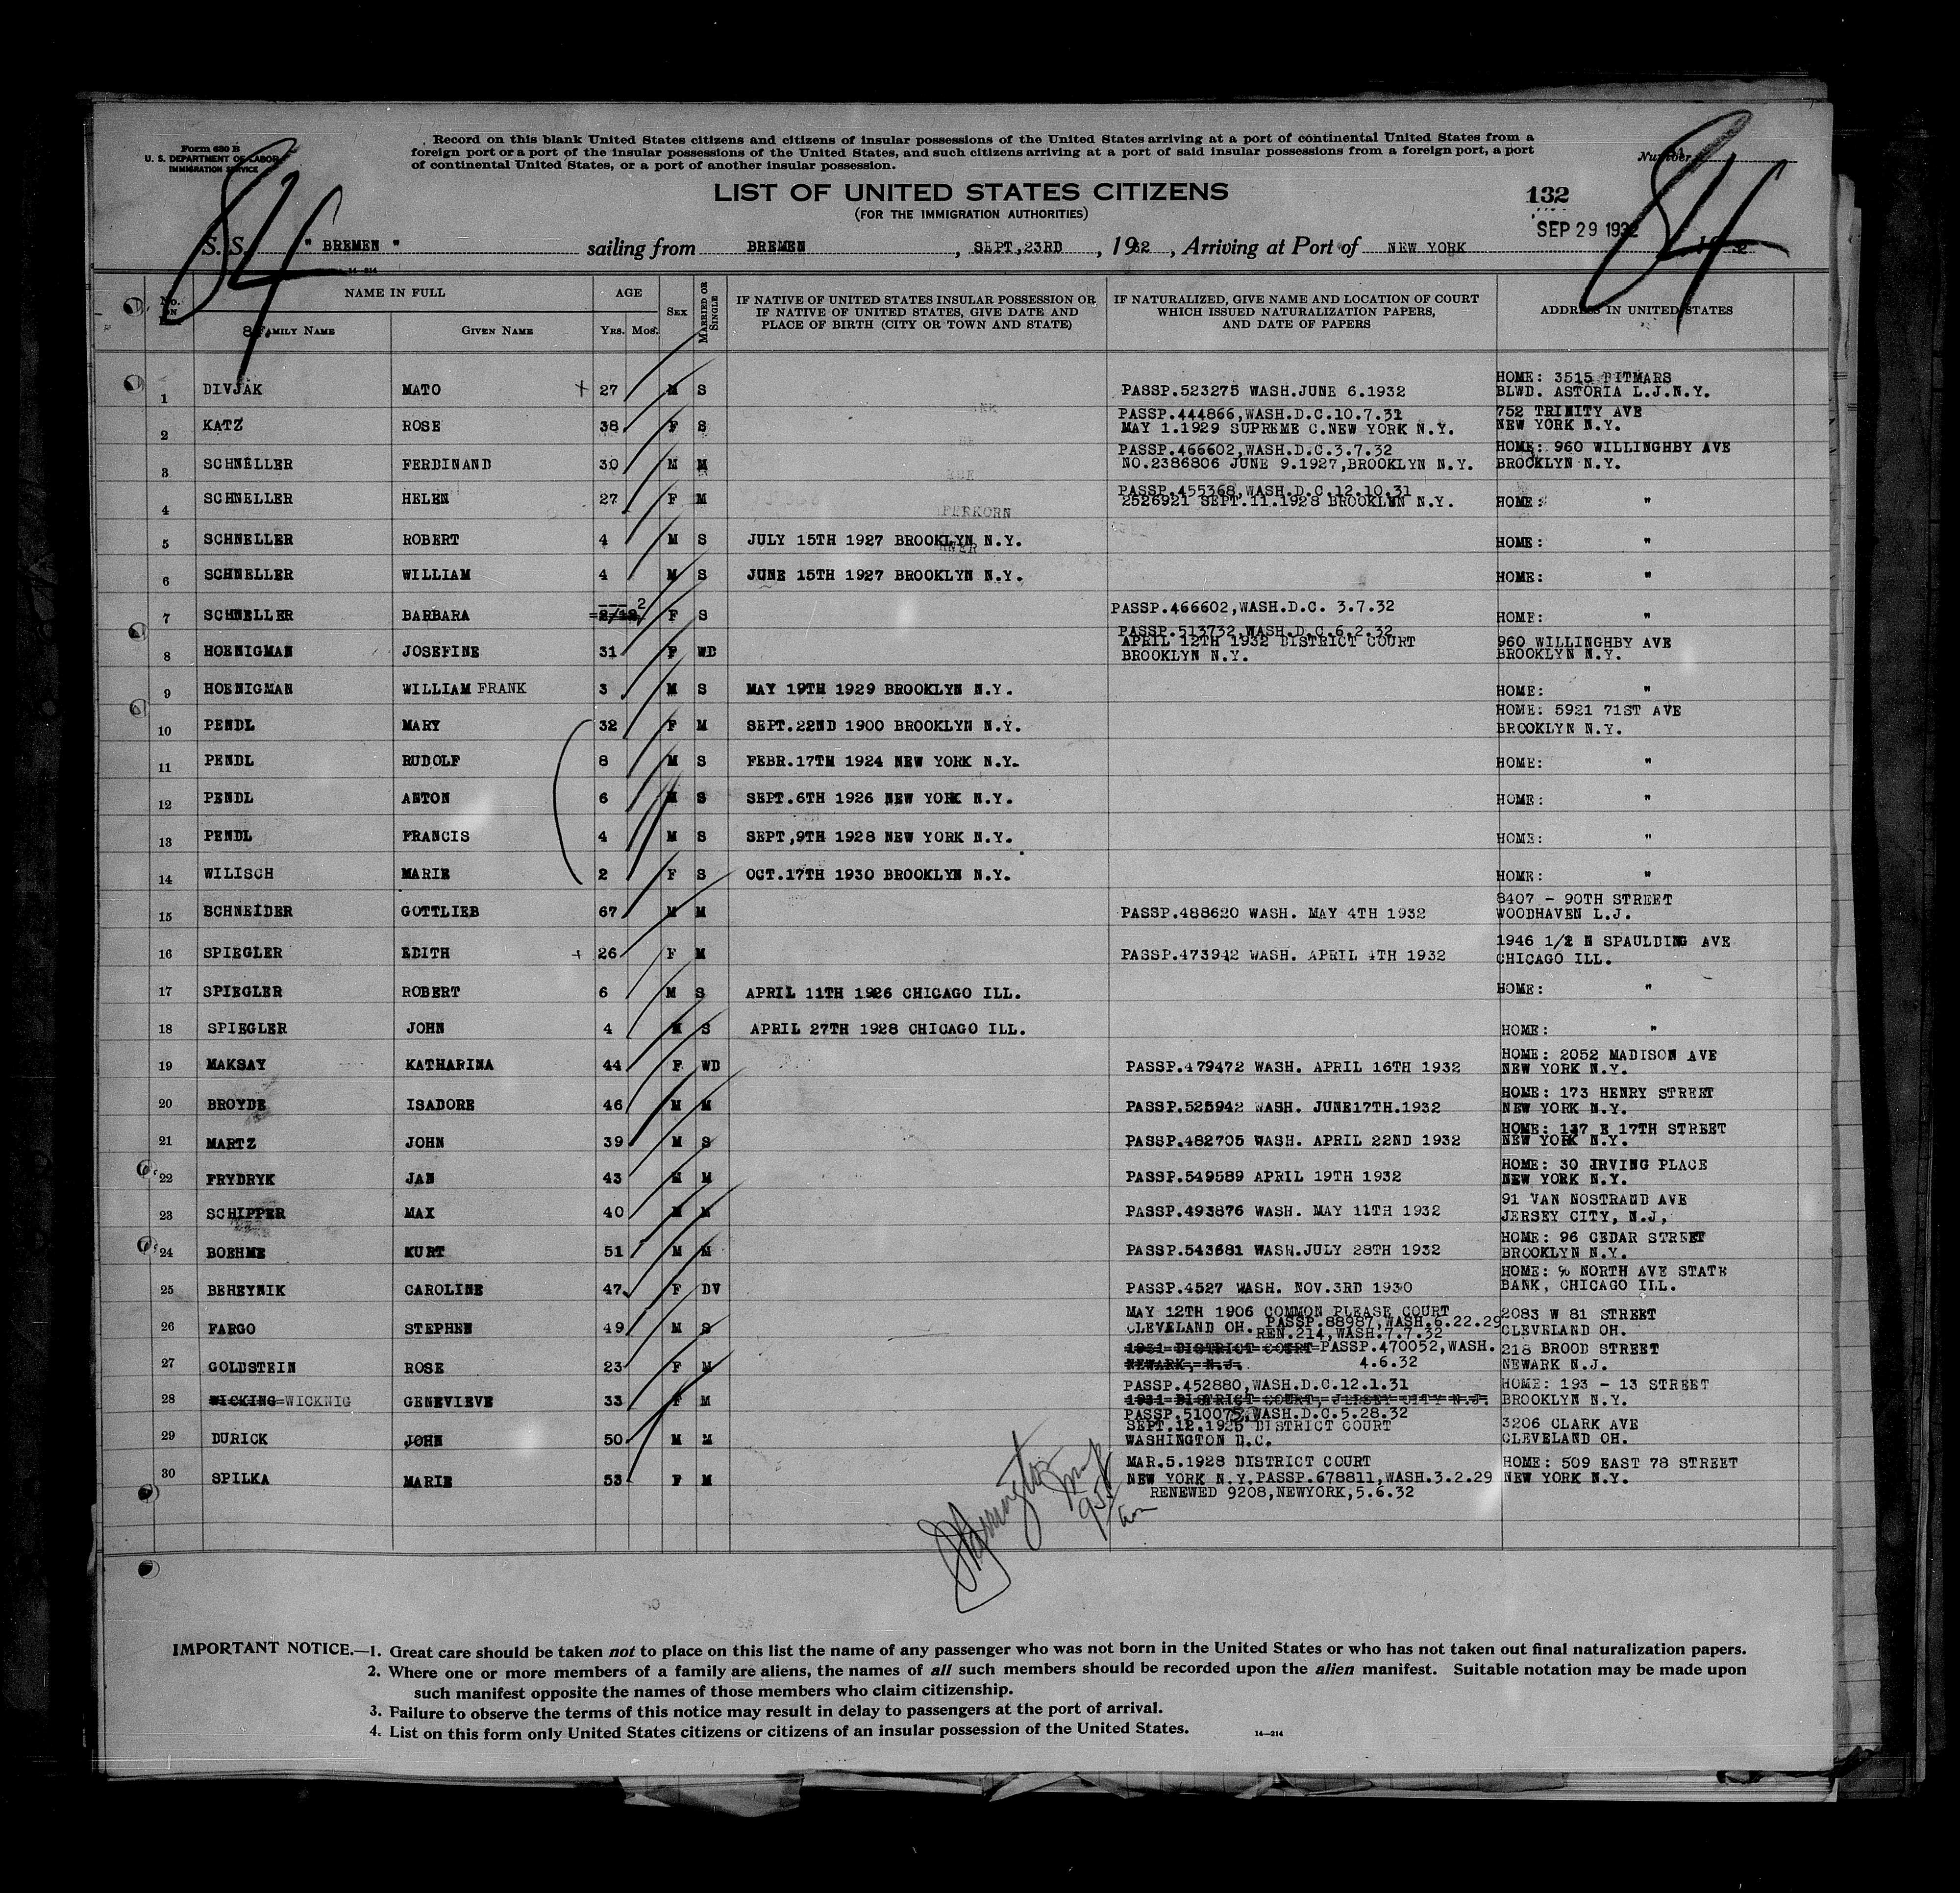 84
84
Form 630 B
U. S. DEPARTMENT OF LABOR
IMMIGRATION SERVICE
Record on this blank United States citizens and citizens of insular possessions of the United States arriving at a port of continental United States from a
foreign port or a port of the insular possessions of the United States, and such citizens arriving at a port of said insular possessions from a foreign port, a port
of continental United States, or a port of another insular possession.
Number
LIST OF UNITED STATES CITIZENS
(FOR THE IMMIGRATION AUTHORITIES)
132
SEP 29 1932
S. S. " BREMEN " sailing from BREMEN , SEPT,23RD , 1932 , Arriving at Port of NEW YORK
14-214
No. ON NAME IN FULL AGE SEX MARRIED OR SINGLE IF NATIVE OF UNITED STATES INSULAR POSSESSION OR IF NATIVE OF UNITED STATES, GIVE DATE AND PLACE OF BIRTH (CITY OR TOWN AND STATE) IF NATURALIZED, GIVE NAME AND LOCATION OF COURT WHICH ISSUED NATURALIZATION PAPERS, AND DATE OF PAPERS ADDRESS IN UNITED STATES
FAMILY NAME GIVEN NAME YRS. MOS.
1 DIVJAK MATO 27 M S PASSP.523275 WASH.JUNE 6.1932 HOME: 3515 PITMARS
BLWD. ASTORIA L.J.N.Y.
2 KATZ ROSE 38 F S PASSP.444866,WASH.D.C.10.7.31 752 TRINITY AVE
MAY 1.1929 SUPREME C.NEW YORK N.Y. NEW YORK N.Y.
3 SCHNELLER FERDINAND 30 M M PASSP.466602,WASH.D.C.3.7.32 HOME: 960 WILLINGHBY AVE
NO.2386806 JUNE 9.1927,BROOKLYN N.Y. BROOKLYN N.Y.
4 SCHNELLER HELEN 27 F M PASSP.455368,WASH.D.C.12.10.31
2526921 SEPT.11.1928 BROOKLWN N.Y. HOME: "
5 SCHNELLER ROBERT 4 M S JULY 15TH 1927 BROOKLYN N.Y. HOME: "
6 SCHNELLER WILLIAM 4 M S JUNE 15TH 1927 BROOKLYN N.Y. HOME: "
7 SCHNELLER BARBARA 2 F S PASSP.466602,WASH.D.C. 3.7.32 HOME: "
8 HOENIGMAN JOSEFINE 31 F WD PASSP.513732,WASH.D.C.6.2.32
APRIL 12TH 1932 DISTRICT COURT 960 WILLINGHBY AVE
BROOKLYN N.Y. BROOKLYN N.Y.
9 HOENIGMAN WILLIAM FRANK 3 M S MAY 19TH 1929 BROOKLYN N.Y. HOME: "
10 PENDL MARY 32 F M SEPT.22ND 1900 BROOKLYN N.Y. HOME: 5921 71ST AVE
BROOKLYN N.Y.
11 PENDL RUDOLF 8 M S FEBR.17TH 1924 NEW YORK N.Y. HOME: "
12 PENDL ANTON 6 M S SEPT.6TH 1926 NEW YORK N.Y. HOME: "
13 PENDL FRANCIS 4 M S SEPT,9TH 1928 NEW YORK N.Y. HOME: "
14 WILISCH MARIE 2 F S OCT.17TH 1930 BROOKLYN N.Y. HOME: "
15 SCHNEIDER GOTTLIEB 67 M M PASSP.488620 WASH. MAY 4TH 1932 8407 - 90TH STREET
WOODHAVEN L.J.
16 SPIEGLER EDITH 26 F M PASSP.473942 WASH. APRIL 4TH 1932 1946 1/2 N SPAULDING AVE
CHICAGO ILL.
17 SPIEGLER ROBERT 6 M S APRIL 11TH 1926 CHICAGO ILL. HOME: "
18 SPIEGLER JOHN 4 M S APRIL 27TH 1928 CHICAGO ILL. HOME: "
19 MAKSAY KATHARINA 44 F WD PASSP.479472 WASH. APRIL 16TH 1932 HOME: 2052 MADISON AVE
NEW YORK N.Y.
20 BROYDE ISADORE 46 M M PASSP.525942 WASH. JUNE17TH.1932 HOME: 173 HENRY STREET
NEW YORK N.Y.
21 MARTZ JOHN 39 M S PASSP.482705 WASH. APRIL 22ND 1932 HOME: 137 E 17TH STREET
NEW YORK N.Y.
22 FRYDRYK JAN 43 M M PASSP.549589 APRIL 19TH 1932 HOME: 30 JRVING PLACE
NEW YORK N.Y.
23 SCHIPPER MAX 40 M M PASSP.493876 WASH. MAY 11TH 1932 91 VAN NOSTRAND AVE
JERSEY CITY, N.J,
24 BOEHME KURT 51 M M PASSP.543681 WASH.JULY 28TH 1932 HOME: 96 CEDAR STREET
BROOKLYN N.Y.
25 BEHEYNIK CAROLINE 47 F DV PASSP.4527 WASH. NOV.3RD 1930 HOME: % NORTH AVE STATE
BANK, CHICAGO ILL.
26 FARGO STEPHEN 49 M S MAY 12TH 1906 COMMON PLEASE COURT 2083 W 81 STREET
CLEVELAND OH. PASSP.88987,WASH.6.22.29 CLEVELAND OH.
REN.214,WASH.7.7.32
27 GOLDSTEIN ROSE 23 F M 1931 DISTRICT COURT PASSP.470052,WASH. 218 BROOD STREET
NEWARK, N.J. 4.6.32 NEWARK N.J.
28 WICKING WICKNIG GENEVIEVE 33 F M PASSP.452880,WASH.D.C.12.1.31 HOME: 193 - 13 STREET
1931 DISTRICT COURT, JERSEY CITY N.J. BROOKLYN N.Y.
29 DURICK JOHN 50 M M PASSP.510075,WASH.D.C.5.28.32
SEPT.12.1925 DISTRICT COURT 3206 CLARK AVE
WASHINGTON D.C. CLEVELAND OH.
30 SPILKA MARIE 53 F M MAR.5.1928 DISTRICT COURT HOME: 509 EAST 78 STREET
NEW YORK N.Y.PASSP.678811,WASH.3.2.29 NEW YORK N.Y.
RENEWED 9208,NEWYORK,5.6.32
IMPORTANT NOTICE.—1. Great care should be taken not to place on this list the name of any passenger who was not born in the United States or who has not taken out final naturalization papers.
2. Where one or more members of a family are aliens, the names of all such members should be recorded upon the alien manifest. Suitable notation may be made upon
such manifest opposite the names of those members who claim citizenship.
3. Failure to observe the terms of this notice may result in delay to passengers at the port of arrival.
4. List on this form only United States citizens or citizens of an insular possession of the United States.
14—214